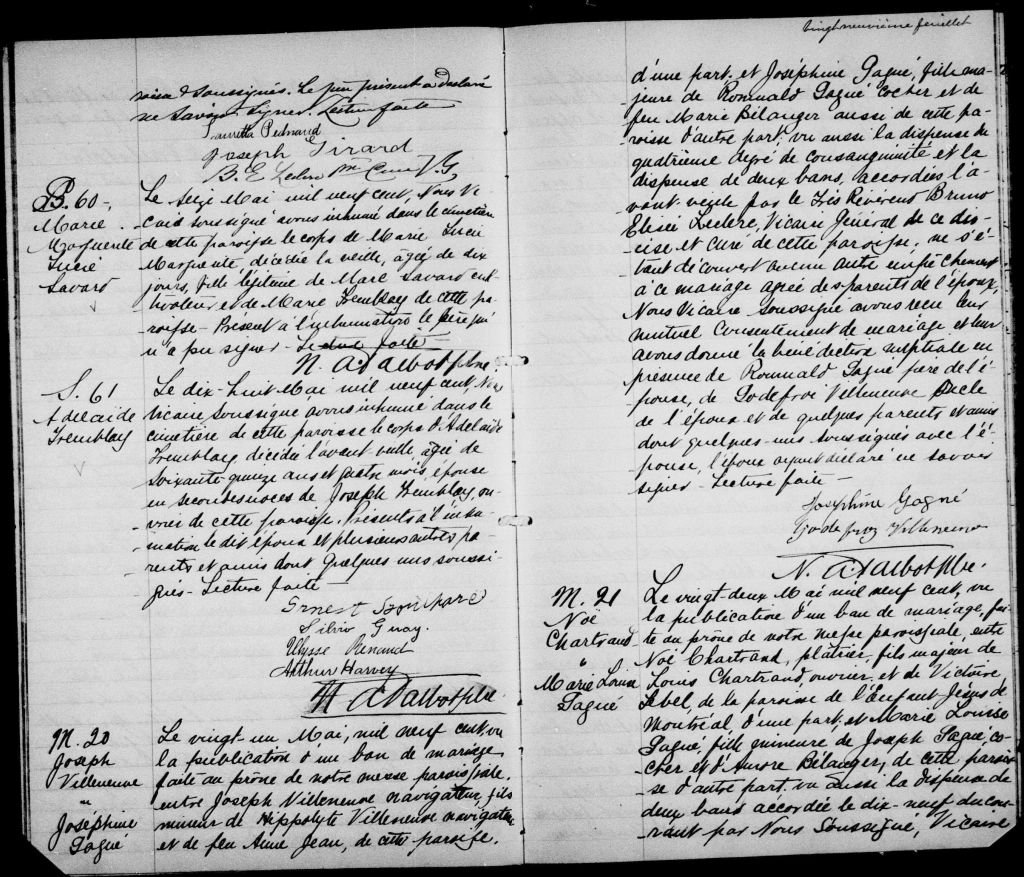 vingt neuvième feuillet
soussignés. Le père présent a déclaré
ne savoir signer. Lecture faite
Joseph Girard
B. E. Leclerc V.G
B. 60
Marie
Marguerite
Lucie
Savard
Le seize Mai mil neuf cent, Nous Vi-
caire soussigné avons inhumé dans le cimetière
de cette paroisse le corps de Marie Lucie
Marguerite décédée la veille, agée de dix
jours, fille légitime de Marc Savard cul-
tivateur et de Marie Tremblay de cette pa-
roisse – Présent à l'inhumation le père qui
n'a pu signer – Lecture faite –
N. A. Talbot Ptre
S. 61
Adelaide
Tremblay
Le dix-huit Mai mil neuf cent, Nous
Vicaire soussigné avons inhumé dans le
cimetière de cette paroisse le corps d'Adelaide
Tremblay, décédée l'avant veille, agée de
soixante quinze ans et quatre mois, épouse
en secondes noces de Joseph Tremblay, ou-
vrier de cette paroisse. Présents à l'inhu-
mation le dit époux et plusieurs autres pa-
rents et amis dont quelques uns soussi-
gnés – Lecture faite
Ernest
Silvio Guay.
Ulysse Renaud
Arthur Harvey
N. A. Talbot Ptre
M. 20
Joseph
Villeneuve
"
Joséphine
Gagné
Le vingt un Mai, mil neuf cent, vu
la publication d'un ban de mariage
faite au prône de notre messe paroissiale.
entre Joseph Villeneuve navigateur, fils
mineur de Hippolyte Villeneuve navigateur
et de feu Anne Jean, de cette paroisse.
d'une part. et Joséphine Gagné, fille ma-
jeure de Romuald Gagné cocher et de
feu Marie Bélanger aussi de cette pa-
roisse d'autre part, vu aussi la dispense du
quatrième degré de consanguinité et la
dispense de deux bans, accordées l'a-
vant veille par le Très Révérend Bruno
Elisée Leclerc, Vicaire Général de ce dio-
cèse et curé de cette paroisse. ne s'é-
tant découvert aucun autre empêchement
à ce mariage agréé des parents de l'époux,
Nous Vicaire soussigné avons reçu leur
mutuel consentement de mariage et leur
avons donné la bénédiction nuptiale en
présence de Romuald Gagné père de l'é-
pouse, de Godefroi Villeneuve oncle
de l'époux et de quelques parents et amis
dont quelques-uns soussignés avec l'é-
pouse, l'époux ayant déclaré ne savoir
signer – Lecture faite –
Joséphine Gagné
Godefroy Villeneuve
N. A. Talbot Ptre.
M. 21
Noë
Chartrand
"
Marie Louise
Gagné
Le vingt deux Mai mil neuf cent, vu
la publication d'un ban de mariage, fai-
te au prône de notre messe paroissiale, entre
Noë Chartrand, plâtrier, fils majeur de
Louis Chartrand, ouvrier et de Victoire
Lebel, de la paroisse de l'Enfant Jésus de
Montréal d'une part, et Marie Louise
Gagné, fille mineure de Joseph Gagné, co-
cher et d'Aurore Bélanger, de cette parois-
se d'autre part. vu aussi la dispense de
deux bans accordée le dix-neuf du cou-
rant par Nous Soussigné, Vicaire